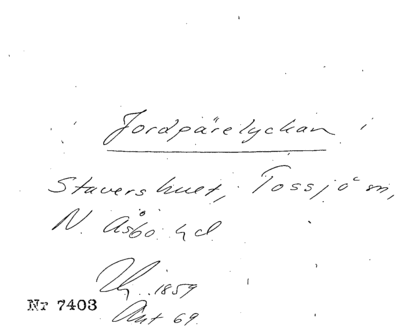 Jordpärelyckan
Stavershult, Tossjö sn,
N. Åsbo hd
1859
Nr 7403
Akt 69